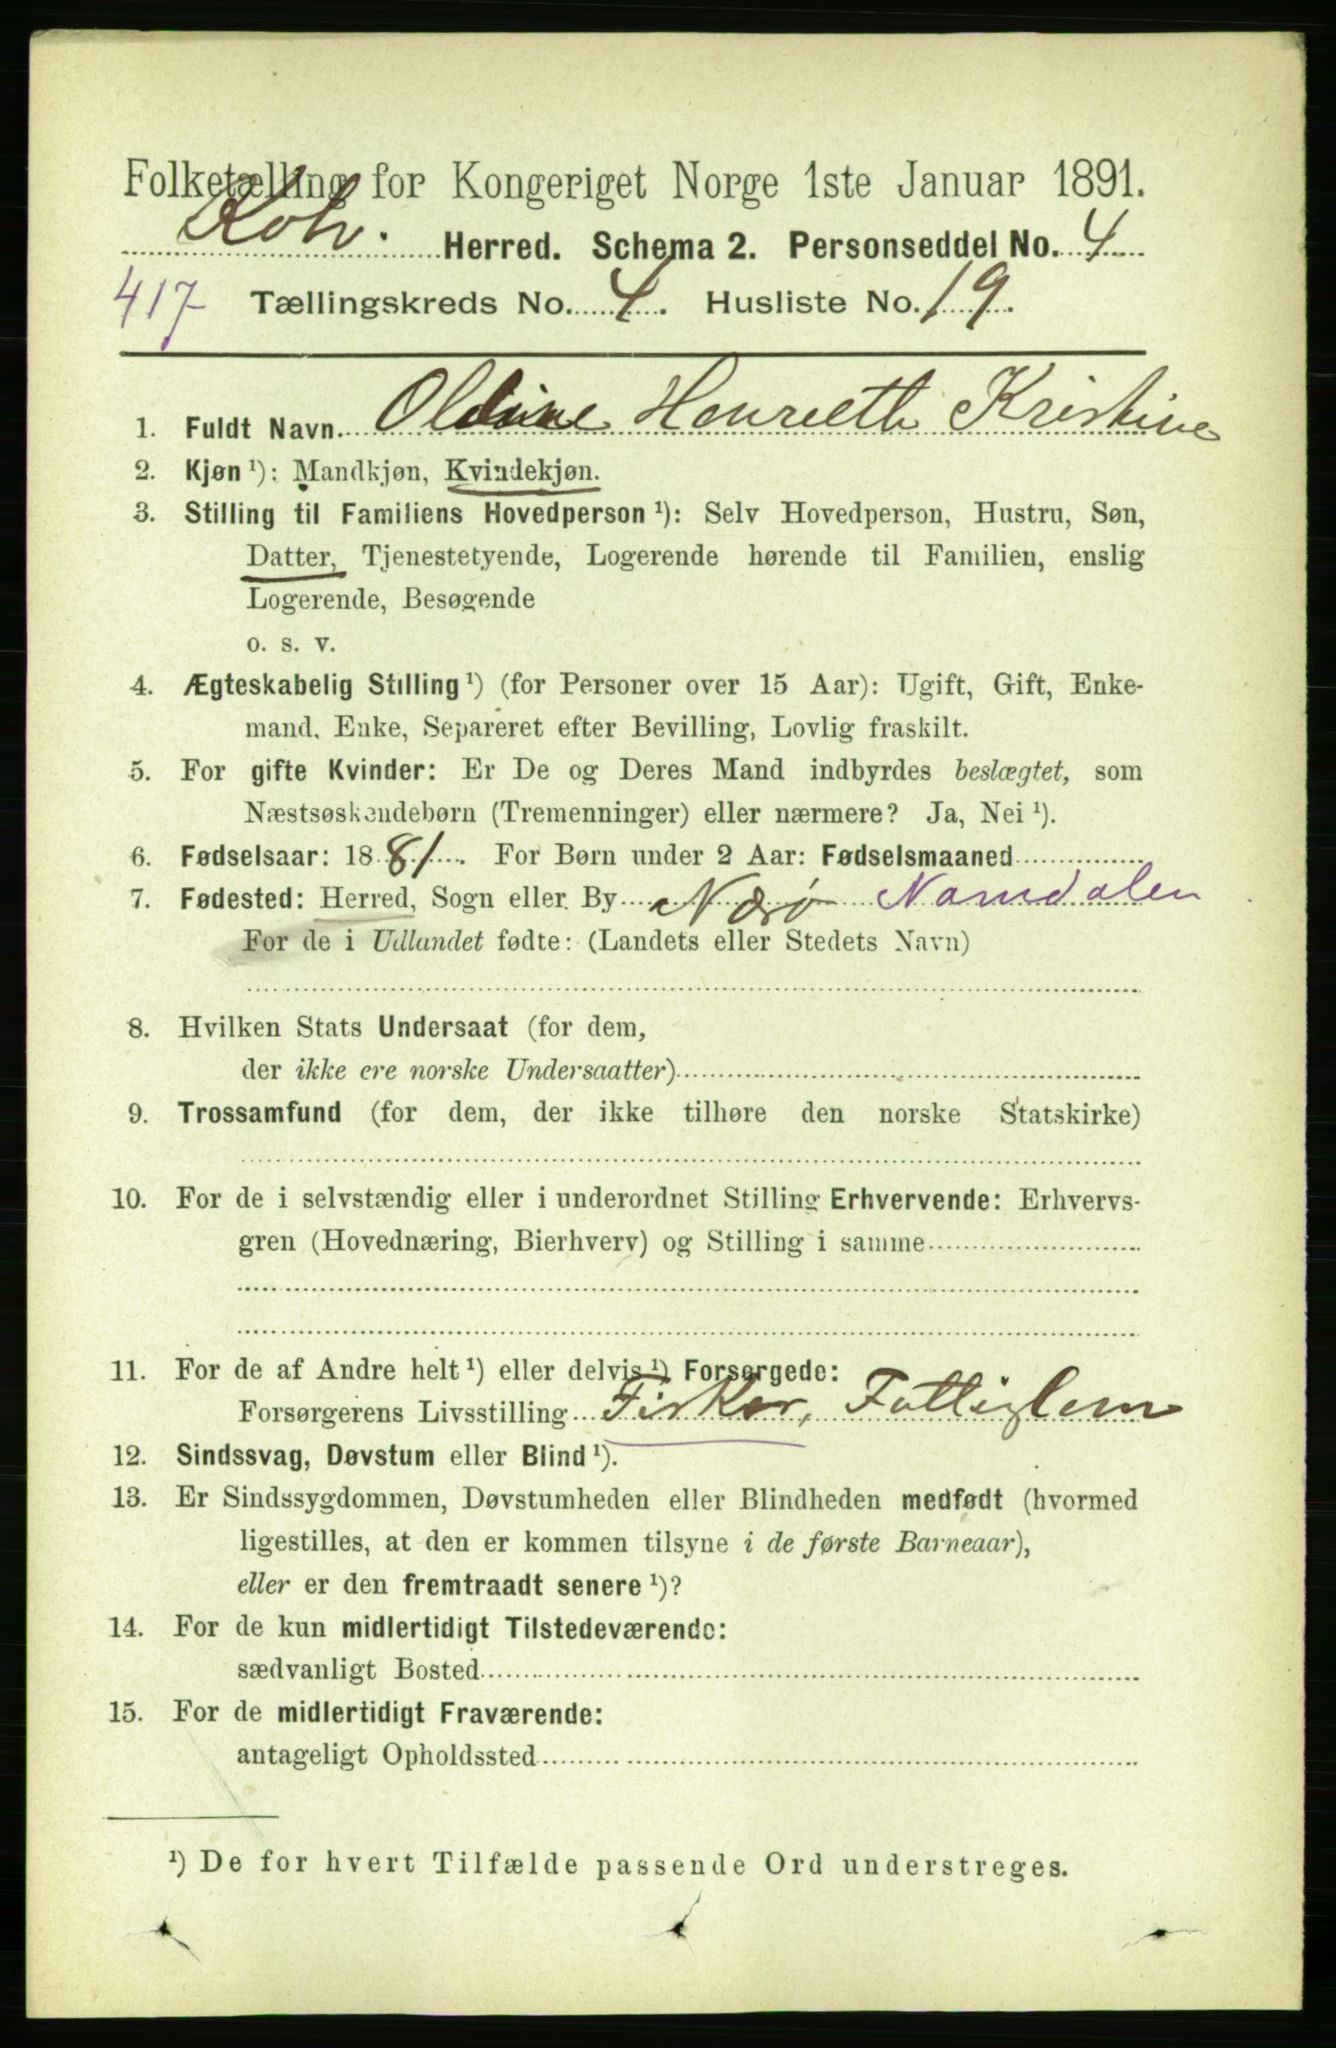 Folketælling for Kongeriget Norge 1ste Januar 1891.
Kolv. Herred. Schema 2. Personseddel No. 4
417 Tællingskreds No. 4. Husliste No. 19.
1. Fuldt Navn. Oldine Henrieth Kristine
2. Kjøn ¹): Mandkjøn, Kvindekjøn.
3. Stilling til Familiens Hovedperson ¹): Selv Hovedperson, Hustru, Søn,
Datter, Tjenestetyende, Logerende hørende til Familien, enslig
Logerende, Besøgende
o. s. v.
4. Ægteskabelig Stilling ¹) (for Personer over 15 Aar): Ugift, Gift, Enke-
mand, Enke, Separeret efter Bevilling, Lovlig fraskilt.
5. For gifte Kvinder: Er De og Deres Mand indbyrdes beslægtet, som
Næstsøskendebørn (Tremenninger) eller nærmere? Ja, Nei ¹).
6. Fødselsaar: 1881. For Børn under 2 Aar: Fødselsmaaned
7. Fødested: Herred, Sogn eller By Nærø Namdalen
For de i Udlandet fødte: (Landets eller Stedets Navn)
8. Hvilken Stats Undersaat (for dem,
der ikke ere norske Undersaatter)
9. Trossamfund (for dem, der ikke tilhøre den norske Statskirke)
10. For de i selvstændig eller i underordnet Stilling Erhvervende: Erhvervs-
gren (Hovednæring, Bierhverv) og Stilling i samme
11. For de af Andre helt ¹) eller delvis ¹) Forsørgede:
Forsørgerens Livsstilling Fisker, Fattiglem
12. Sindssvag, Døvstum eller Blind ¹).
13. Er Sindssygdommen, Døvstumheden eller Blindheden medfødt (hvormed
ligestilles, at den er kommen tilsyne i de første Barneaar),
eller er den fremtraadt senere ¹)?
14. For de kun midlertidigt Tilstedeværende:
sædvanligt Bosted
15. For de midlertidigt Fraværende:
antageligt Opholdssted
¹) De for hvert Tilfælde passende Ord understreges.